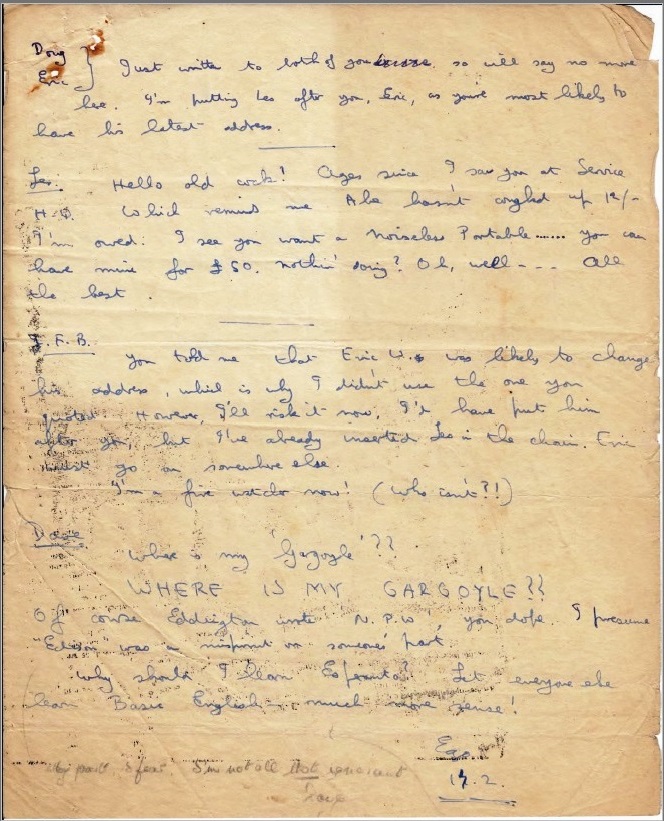 Doug
Eric } Just written to both of you so will say no more
here. I'm putting Les after you, Eric, as you're most likely to
have his latest address.
Les. Hello old cock! Ages since I saw you at Service
H.Q. Which reminds me Abe hasn't coughed up 12/-
I'm owed. I see you want a Noiseless Portable...... you can
have mine for £50. Nothin' doing? Oh, well - - - All
the best.
H.F.B.
You told me that Eric W. was likely to change
his address, which is why I didn't use the one you
quoted. However, I'll risk it now. I'd have put him
after you, but I've already inserted Les in the chain. Eric
must go on somewhere else.
I'm a fire watcher now! (Who isn't?!)
Dave
Where is my 'Gargoyle'??
WHERE IS MY GARGOYLE??
Of course Eddington wrote N.P.W', you dope. I presume
"Edison" was a misprint on someone's part.
Why should I learn Esperanto? Let everyone else
learn Basic English - much more sense!
Ego.
17.2.
My part, I fear. I'm not all that ignorant
Dave